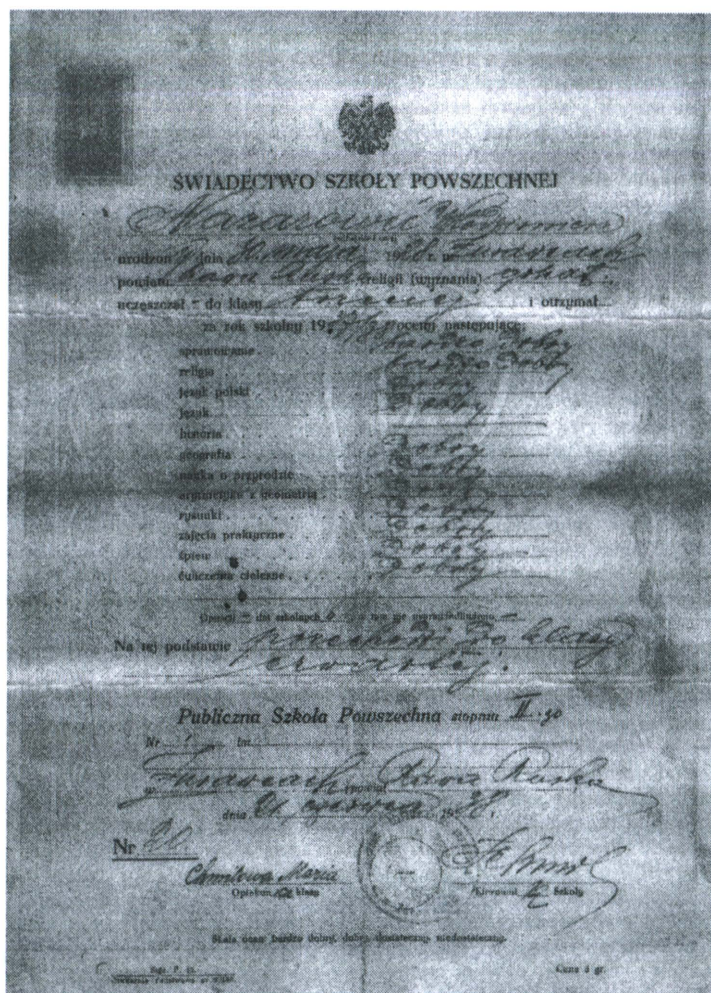 ŚWIADECTWO SZKOŁY POWSZECHNEJ
Nazarowić Włodzimierz
urodzony dnia 10. maja 1928 r. w
powiatu Rawa Ruska religii (wyznania) gr.kat.
uczęszczał - do klasy trzeciej i otrzymał
za rok szkolny 1937/8 oceny następujące:
sprawowanie bardzo dobry
religia bardzo dobry
język polski dobry
język dobry
historia
geografia dobry
nauka o przyrodzie dobry
arytmetyka z geometrią
rysunki dobry
zajęcia praktyczne dobry
śpiew dobry
ćwiczenia cielesne dobry
Opuścił - dni szkolnych w tym nie usprawiedliwiono -
Na tej podstawie przechodzi do klasy
czwartej.
Publiczna Szkoła Powszechna stopnia II-go
Nr im.
w powiat Rawa Ruska
dnia 21 czerwca 1938.
Nr 20.
Chmilowa Maria
Opiekun ka klasy
Kierownik Szkoły
Skala ocen: bardzo dobry, dobry, dostateczny, niedostateczny.
Cena 5 gr.